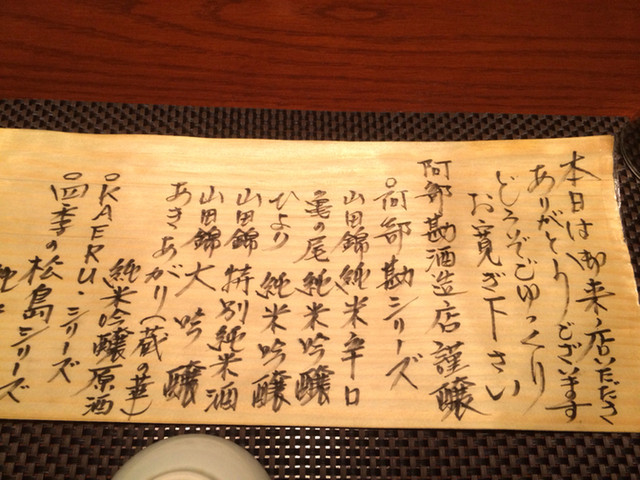 本日は御来店いただき
ありがとうございます
どうぞごゆっくり
お寛ぎ下さい
阿部勘酒造店謹醸
○阿部勘シリーズ
山田錦純米辛口
亀の尾純米吟醸
ひより 純米吟醸
山田錦特別純米酒
山田錦大吟醸
あきあがり(蔵の華)
純米吟醸原酒
○KAERU・シリーズ
○四季の松島シリーズ
純